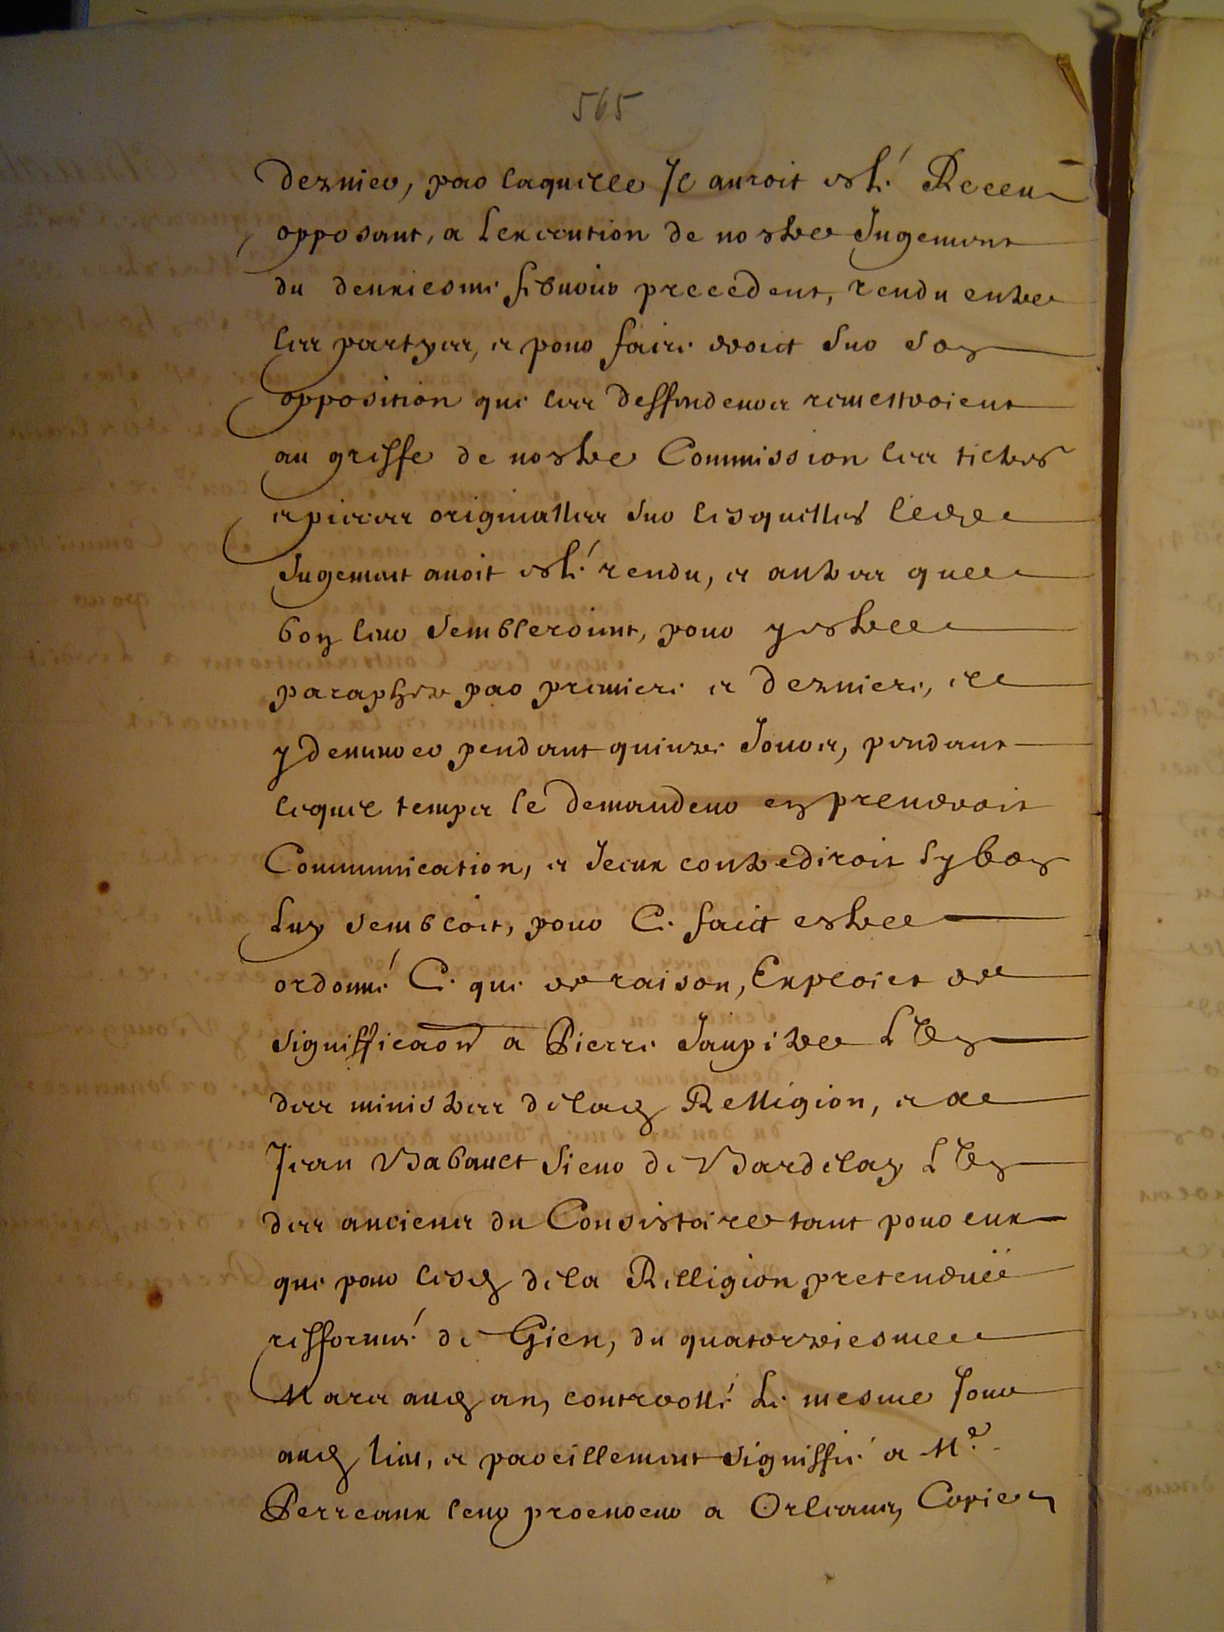 565
dernier, par laquelle Il auroit esté Receu
opposant, a Lexecution de nostre Jugement
du deuxiesme febvrier precedent, rendu entre
les partyes, et pour faire droict Sur Son
opposition que les deffendeurs remettroient
au greffe de nostre Commission les tiltres
et pieces originalles Sur lesquelles ledit
Jugement avoit esté rendu, et autres que
bon leur Sembleroient, pour y estre
paraphez par premiere et derniere, et
y demeurer pendant quinze Jours, pendant
lequel temps le demandeur en prendroit
Communication, et Iceux contrediroit Sy bon
Luy Sembloit, pour Ce faict estre
ordonné Ce que de raison, Exploict de
Signifficaon a Pierre Jaupitre L'Un
des ministres de lad Relligion, et a
Jean Babault Sieur de Bardelay L'Un
des anciens du Consistoire tant pour eux
que pour lesd de la Relligion pretenduë
refformé de Gien, du quatorziesme
Mars aud an, controllé Le mesme Jour
aud lieu, et pareillement Signiffié a Me
Perreaux leur procureur a Orleans, Copie